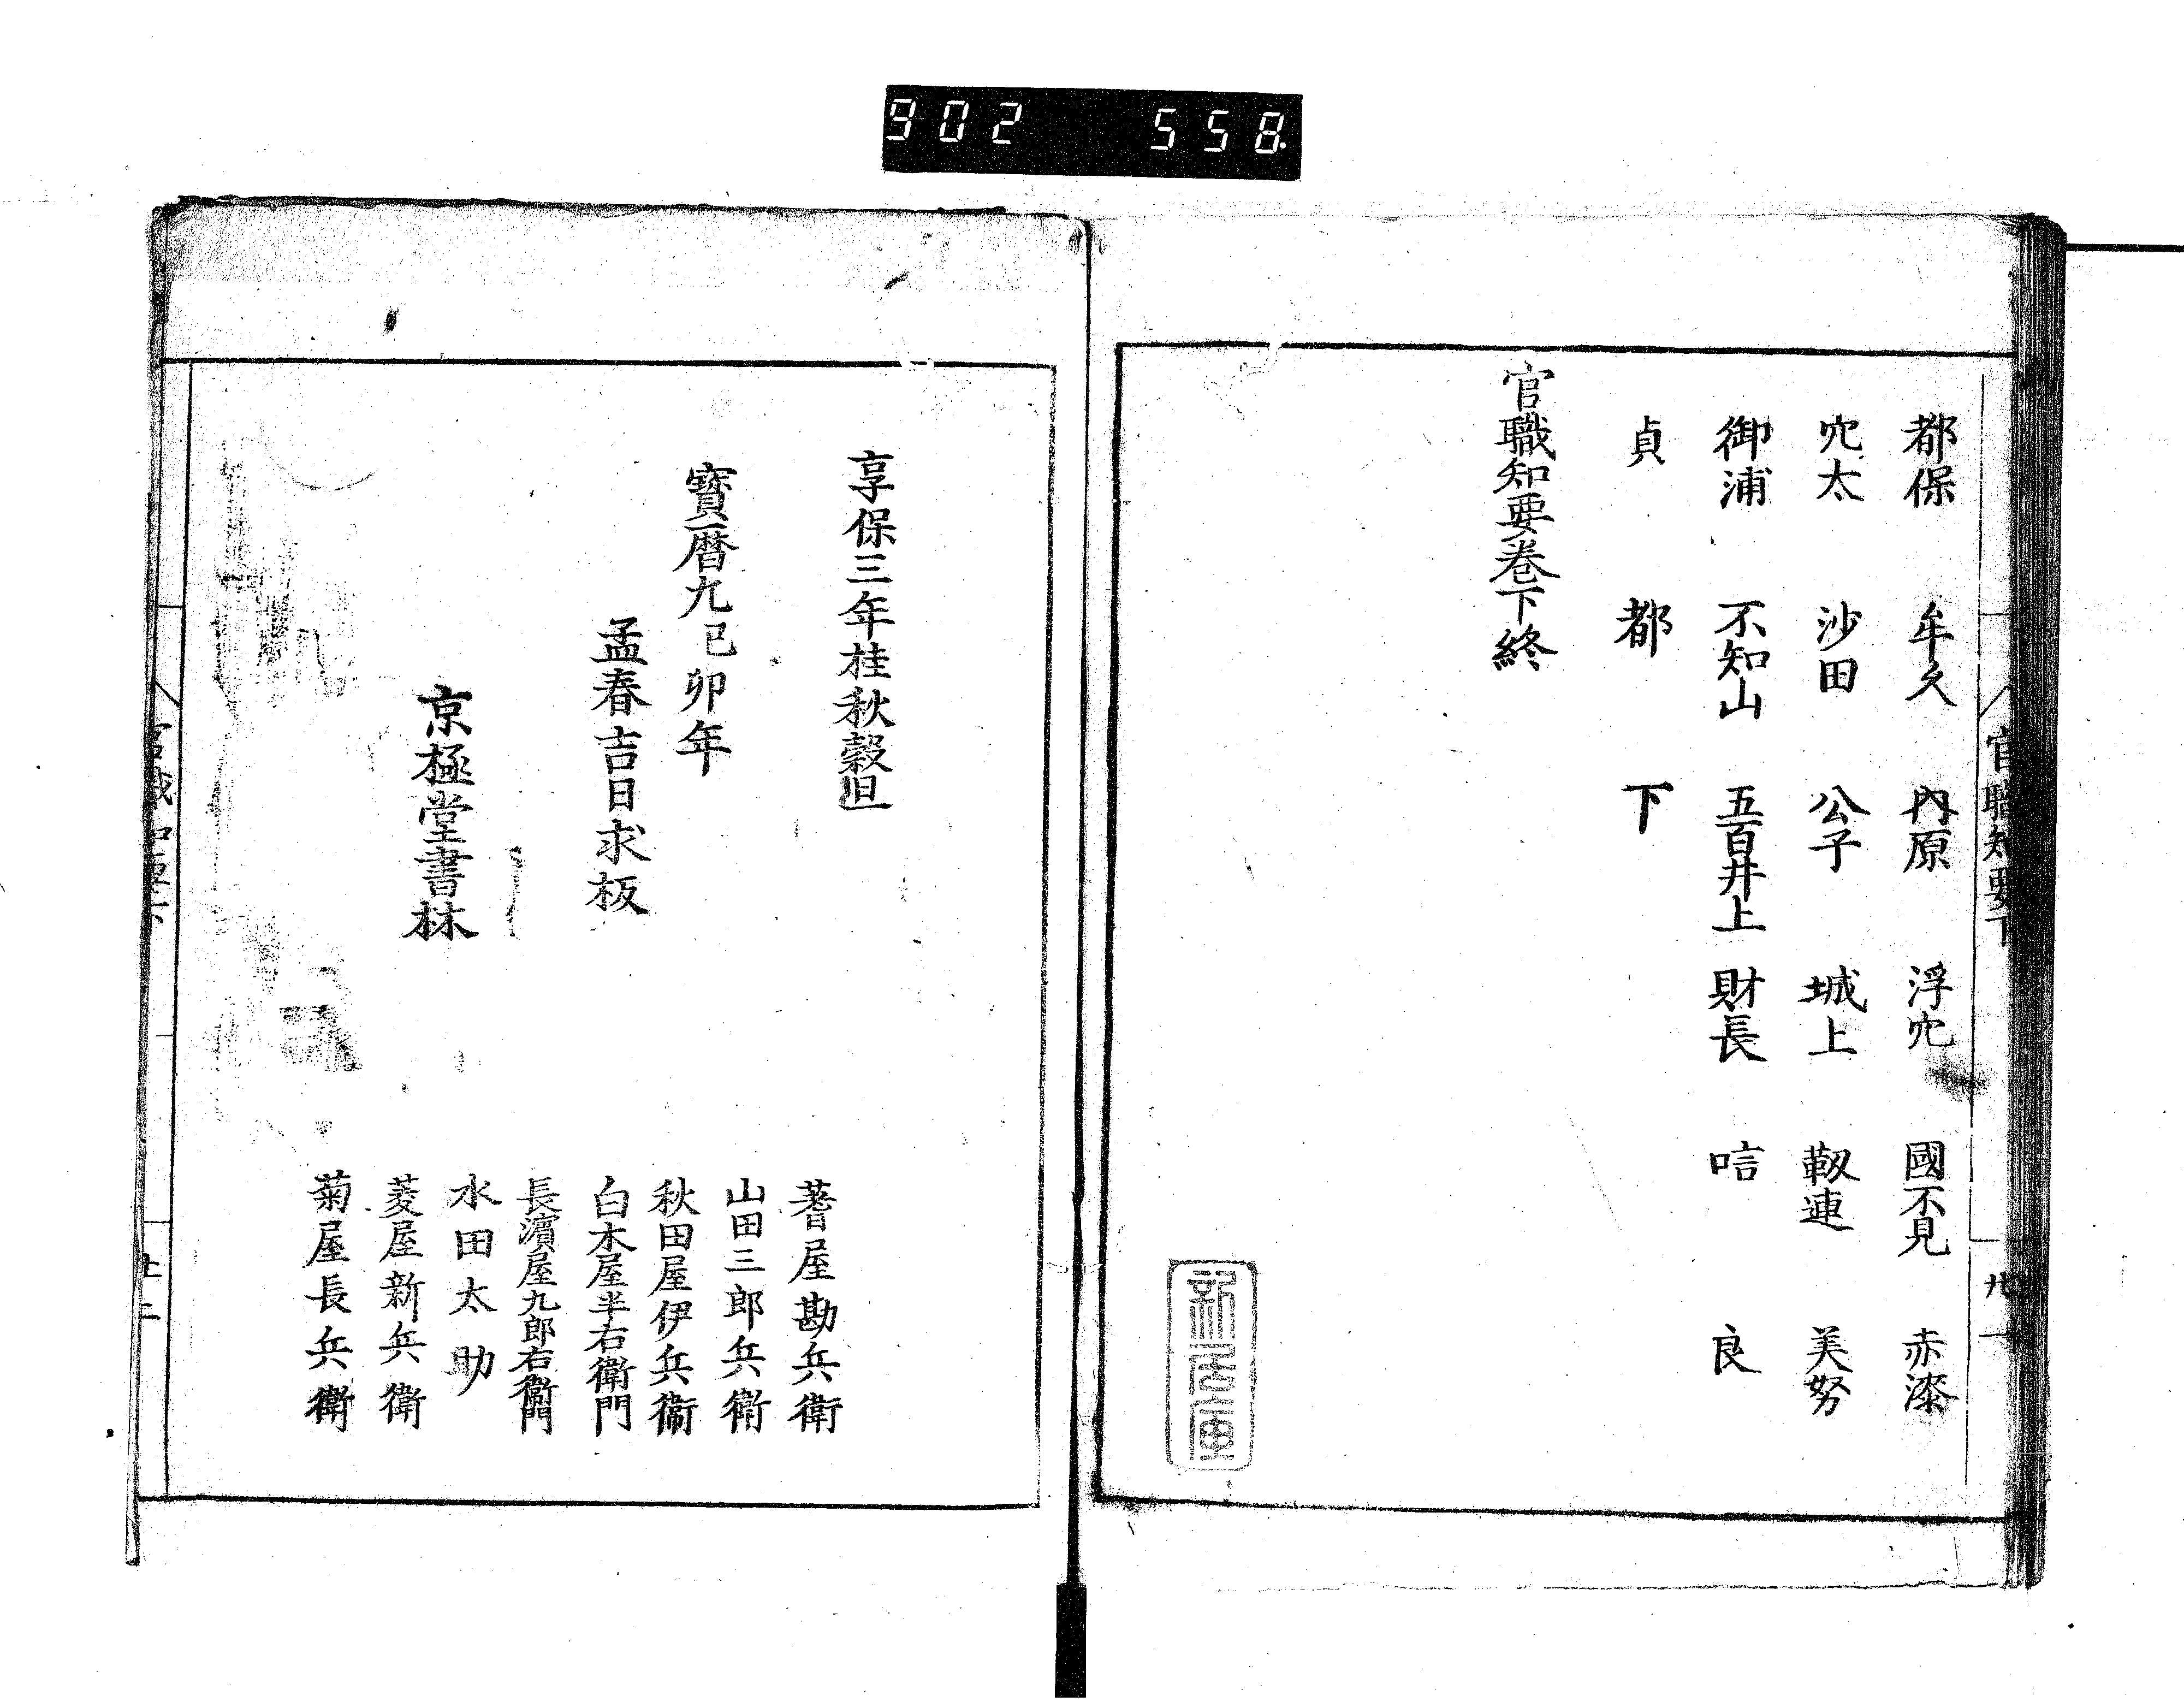 902 558
官職知要下 卅一
都保 牟久 內原 浮穴 國不見 赤漆
穴太 沙田 公子 城上 靱連 美努
御浦 不知山 五百井上 財長 唁 良
貞 都 下
官職知要卷下終
享保三年桂秋穀旦
寳暦九己卯年
孟春吉日求板
京極堂書林
蓍屋勘兵衛
山田三郎兵衛
秋田屋伊兵衞
白木屋半右衛門
長濱屋九郎右衞門
水田太助
菱屋新兵衛
菊屋長兵衛